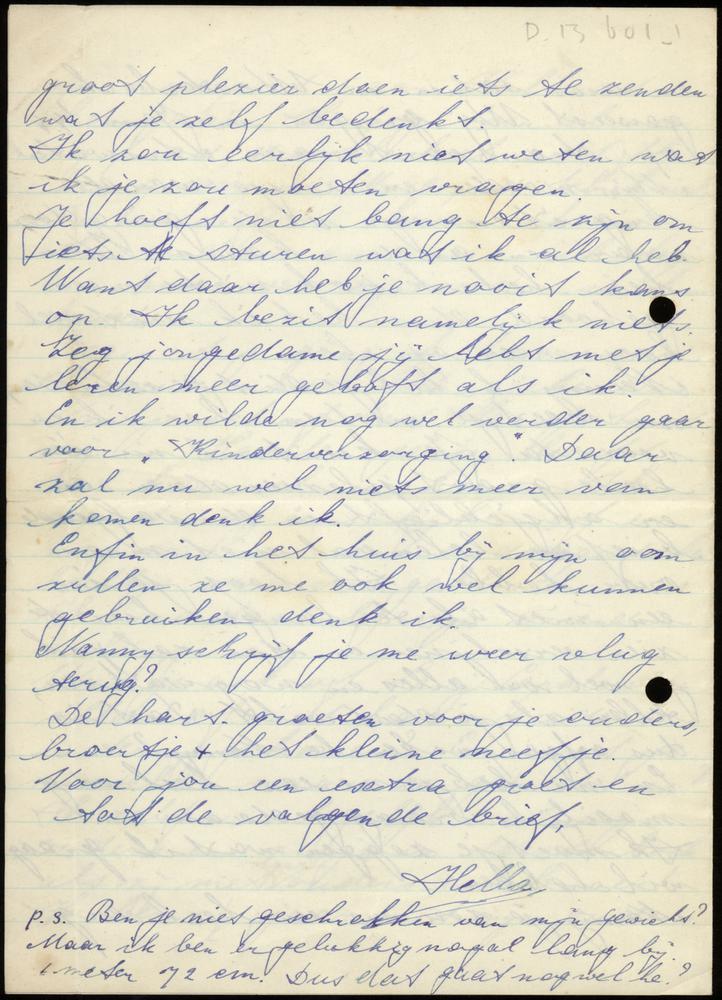 D.13 601_1
groot plezier doen iets te zenden
wat je zelf bedenkt.
Ik zou eerlijk niet weten wat
ik je zou moeten vragen.
Je hoeft niet bang te zijn om
iets te sturen wat ik al heb.
Want daar heb je nooit kans
op. Ik bezit namelijk niets.
Zeg jongedame jij hebt met je
leren meer geboft als ik.
En ik wilde nog wel verder gaan
voor "Kinderverzorging". Daar
zal nu wel niets meer van
komen denk ik.
Enfin in het huis bij mijn oom
zullen ze me ook wel kunnen
gebruiken denk ik.
Nanny schrijf je me weer vlug
terug?
De hart. groeten voor je ouders,
broertje + het kleine neefje.
Voor jou een extra groet en
tot de volgende brief,
Hella
p.s. Ben je niet geschrokken van mijn gewicht?
Maar ik ben er gelukkig nogal lang bij.
1 meter 72 cm. Dus dat gaat nog wel he.?